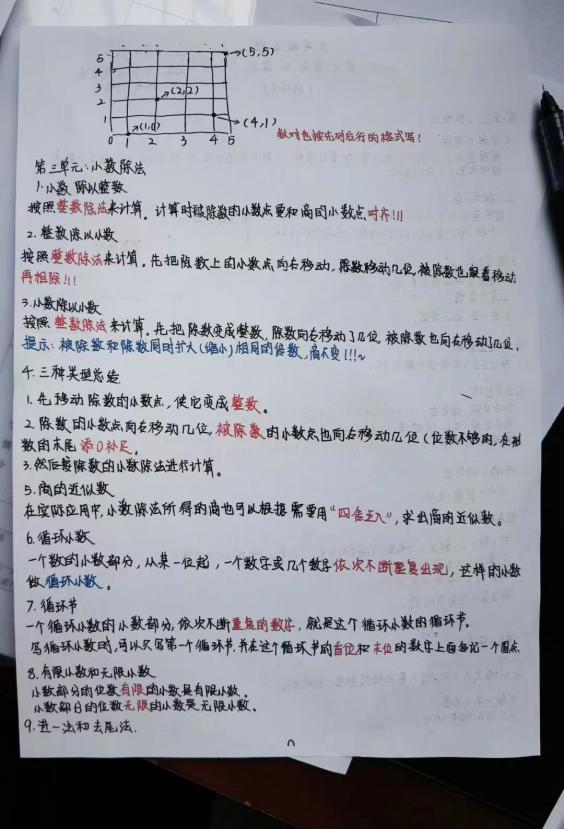 5 (5,5)
4
3
2 (2,2)
1 (4,1)
(1,0)
0 1 2 3 4 5
数对也按先列后行的格式写!
第三单元:小数除法
1.小数除以整数
按照整数除法来计算。计算时被除数的小数点要和商的小数点对齐!!!
2.整数除以小数
按照整数除法来计算。先把除数上的小数点向右移动,除数移动几位,被除数也跟着移动
再相除!!!
3.小数除以小数
按照整数除法来计算。先把除数变成整数,除数向右移动了几位,被除数也向右移动几位。
提示:被除数和除数同时扩大(缩小)相同的倍数,商不变!!!~
4.三种类型总结
1.先移动除数的小数点,使它变成整数。
2.除数的小数点向右移动几位,被除数的小数点也向右移动几位(位数不够的,在被
数的末尾添0补足。
3.然后按除数的小数除法进行计算。
5.商的近似数
在实际应用中,小数除法所得的商也可以根据需要用“四舍五入”,求出商的近似数。
6.循环小数
一个数的小数部分,从某一位起,一个数字或几个数字依次不断重复出现,这样的小数
做循环小数。
7.循环节
一个循环小数的小数部分,依次不断重复的数字,就是这个循环小数的循环节。
写循环小数时,可以只写第一个循环节,并在这个循环节的首位和末位的数字上面各记一个圆点
8.有限小数和无限小数
小数部分的位数有限的小数是有限小数。
小数部分的位数无限的小数是无限小数。
9.进一法和去尾法.